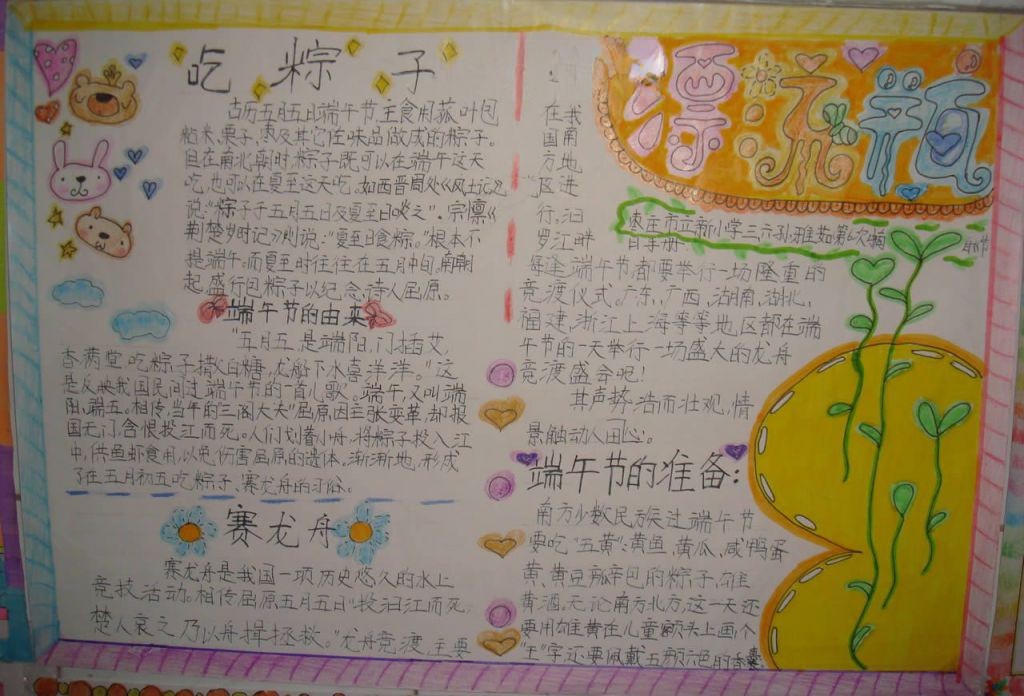 吃粽子
古历五月五日端午节,主食用菰叶包
粘米、栗子、枣及其它佐味品做成的粽子。
但在南北朝时,粽子既可以在端午这天
吃,也可以在夏至这天吃。如西晋周处《风土记》
说:"粽子于五月五日及夏至日啖之"。宗懔《
荆楚岁时记》则说:"夏至日食粽。"根本不
提端午。而夏至时往往在五月中旬,
起,盛行包粽子以纪念诗人屈原。
端午节的由来
"五月五,是端阳,门插艾,
香满堂,吃粽子撒白糖,龙船下水喜洋洋。"这
是反映我国民间过端午节的一首儿歌。端午,又叫端
阳、端五。相传,当年的三闾大夫"屈原因主张变革,却报
国无门,含恨投江而死。人们划着小舟,将粽子投入江
中,供鱼虾食用,以免伤害屈原的遗体。渐渐地,形成
了在五月初五吃粽子、赛龙舟的习俗。
赛龙舟
赛龙舟是我国一项历史悠久的水上
竞技活动。相传屈原五月五日"投汨江而死,
楚人哀之乃以舟揖拯救。"龙舟竞渡,主要
漂流瓶
枣庄市立新小学三六孙雅茹第6次编
日手册
在我
国南
方地
区进
行。汨
罗江畔
每逢端午节,都要举行一场隆重的
竞渡仪式。广东、广西、湖南、湖北、
福建、浙江上海等等地区都在端
午节的一天举行一场盛大的龙舟
竞渡盛会呢!
其声势浩而壮观,情
景触动人心。
端午节的准备:
南方少数民族过端午节
要吃"五黄":黄鱼、黄瓜、咸鸭蛋
黄、黄豆瓣辛包的粽子、雄
黄酒。无论南方北方,这一天还
要用雄黄在儿童额头上画个
"王"字还要佩戴五颜六色的香囊